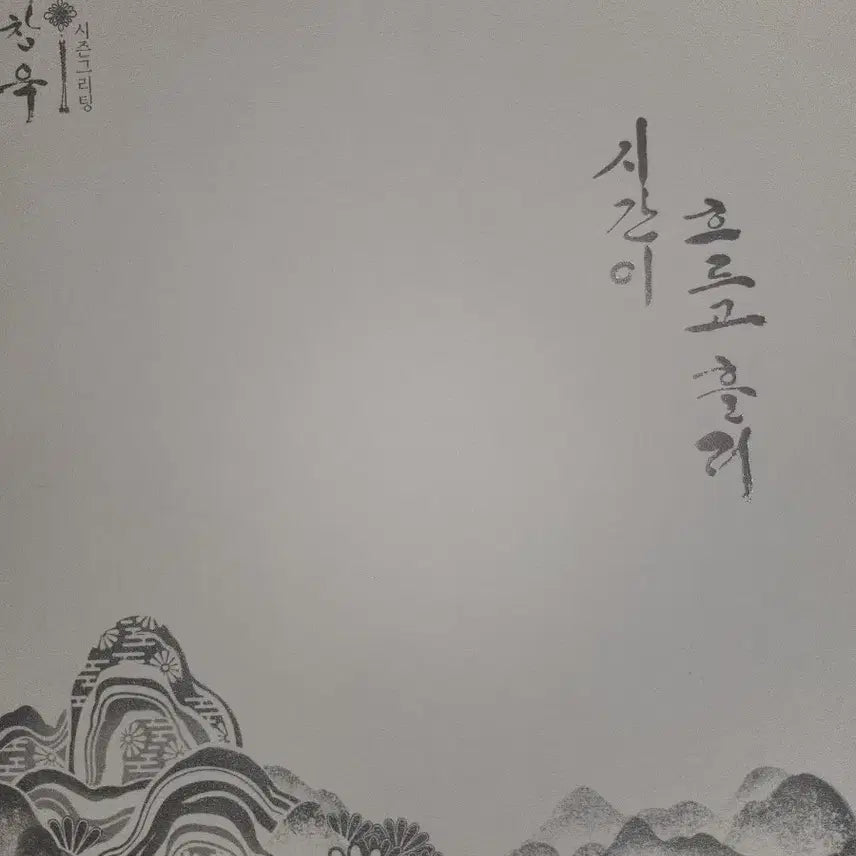 창욱
시즌그리팅
시간이
흐르고 흘러